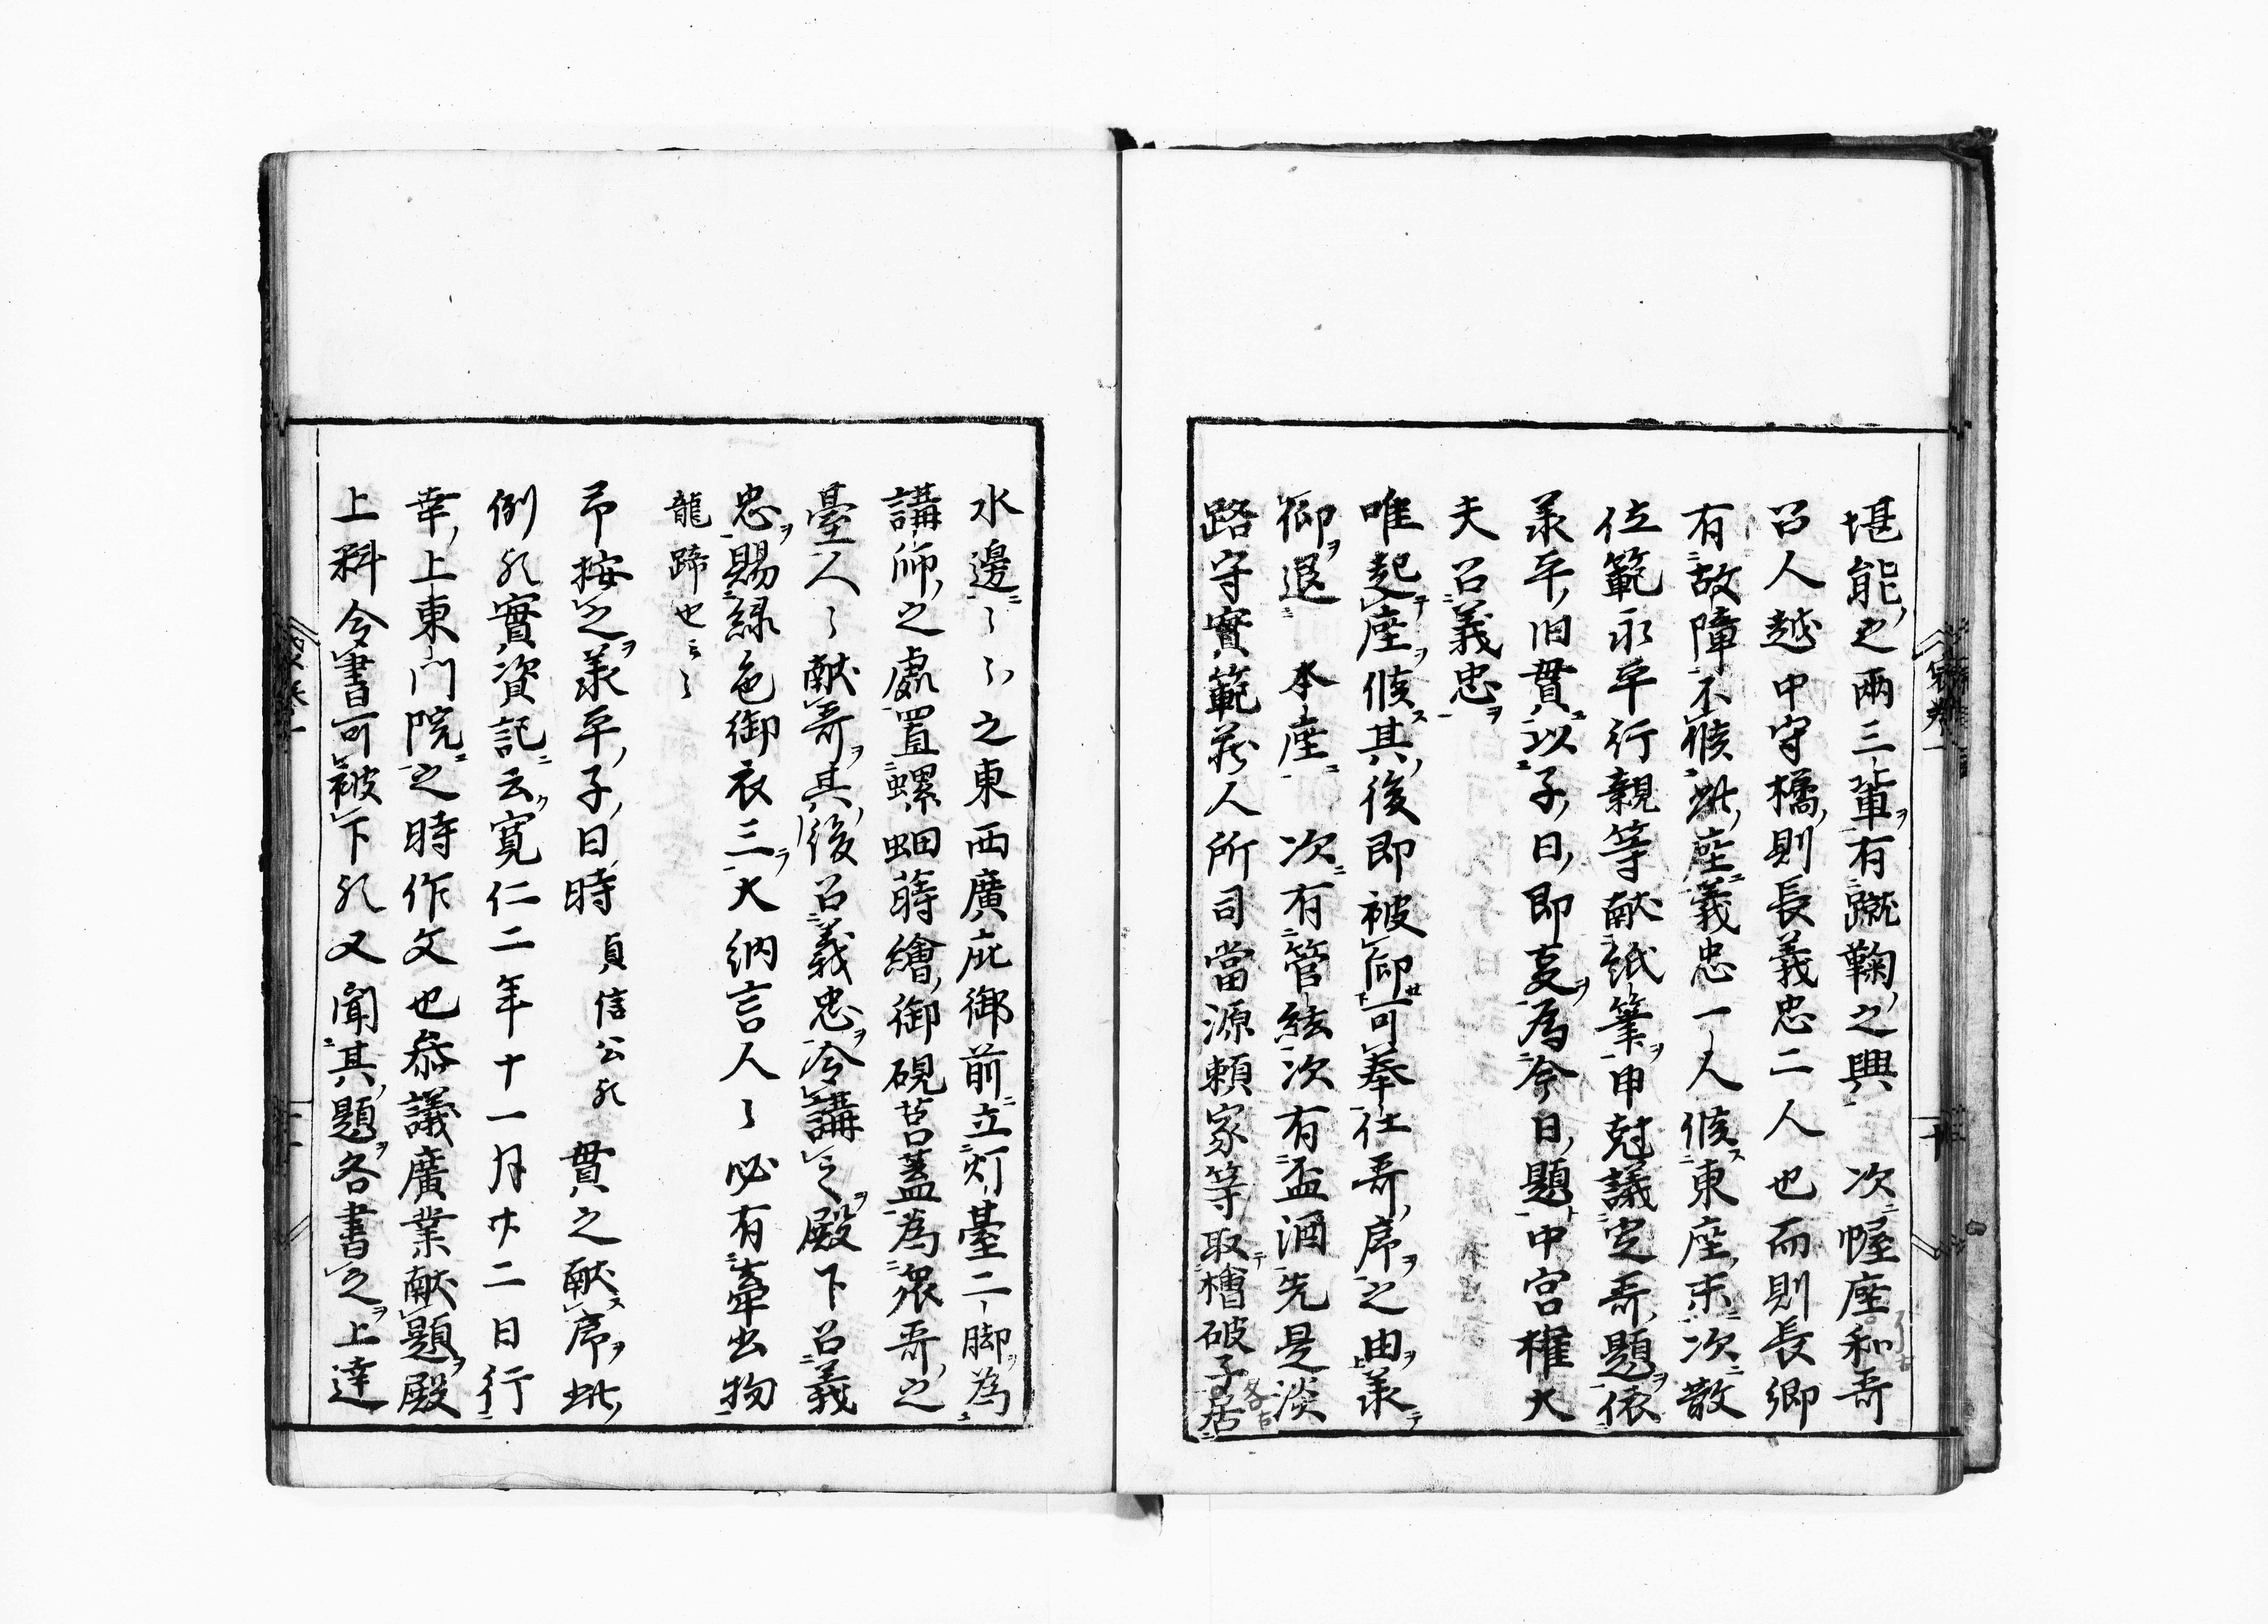 堪能之両三輩有蹴鞠之興　次幄座和哥
召人越中守橘則長義忠二人也而則長卿
有故障不候此座義忠一人候東座末次散
位範永平行親等献紙筆申尅議定哥題依
兼平旧貫以子日即変為今日題中宮権大
夫召義忠
唯起座候其後即被仰可奉仕哥序之由兼
仰退　本座　次有管絃次有盃酒先是淡
路守實範蔵人所司當源頼家等取檜破子居
水邊〻〻之東西廣庇御前立灯臺二脚為
講師之處置螺鈿蒔繪御硯筥蓋為衆哥之
臺人〻献哥其後召義忠令講之殿下召義
忠賜緑色御衣三大納言人〻必有牽出物
龍蹄也云〻
予按之兼平子日時　貞信公欤　貫之献序此
例欤實資記云寛仁二年十一月廿二日行
幸上東門院之時作文也参議廣業献題殿
上料令書可被下欤又聞其題各書之上達